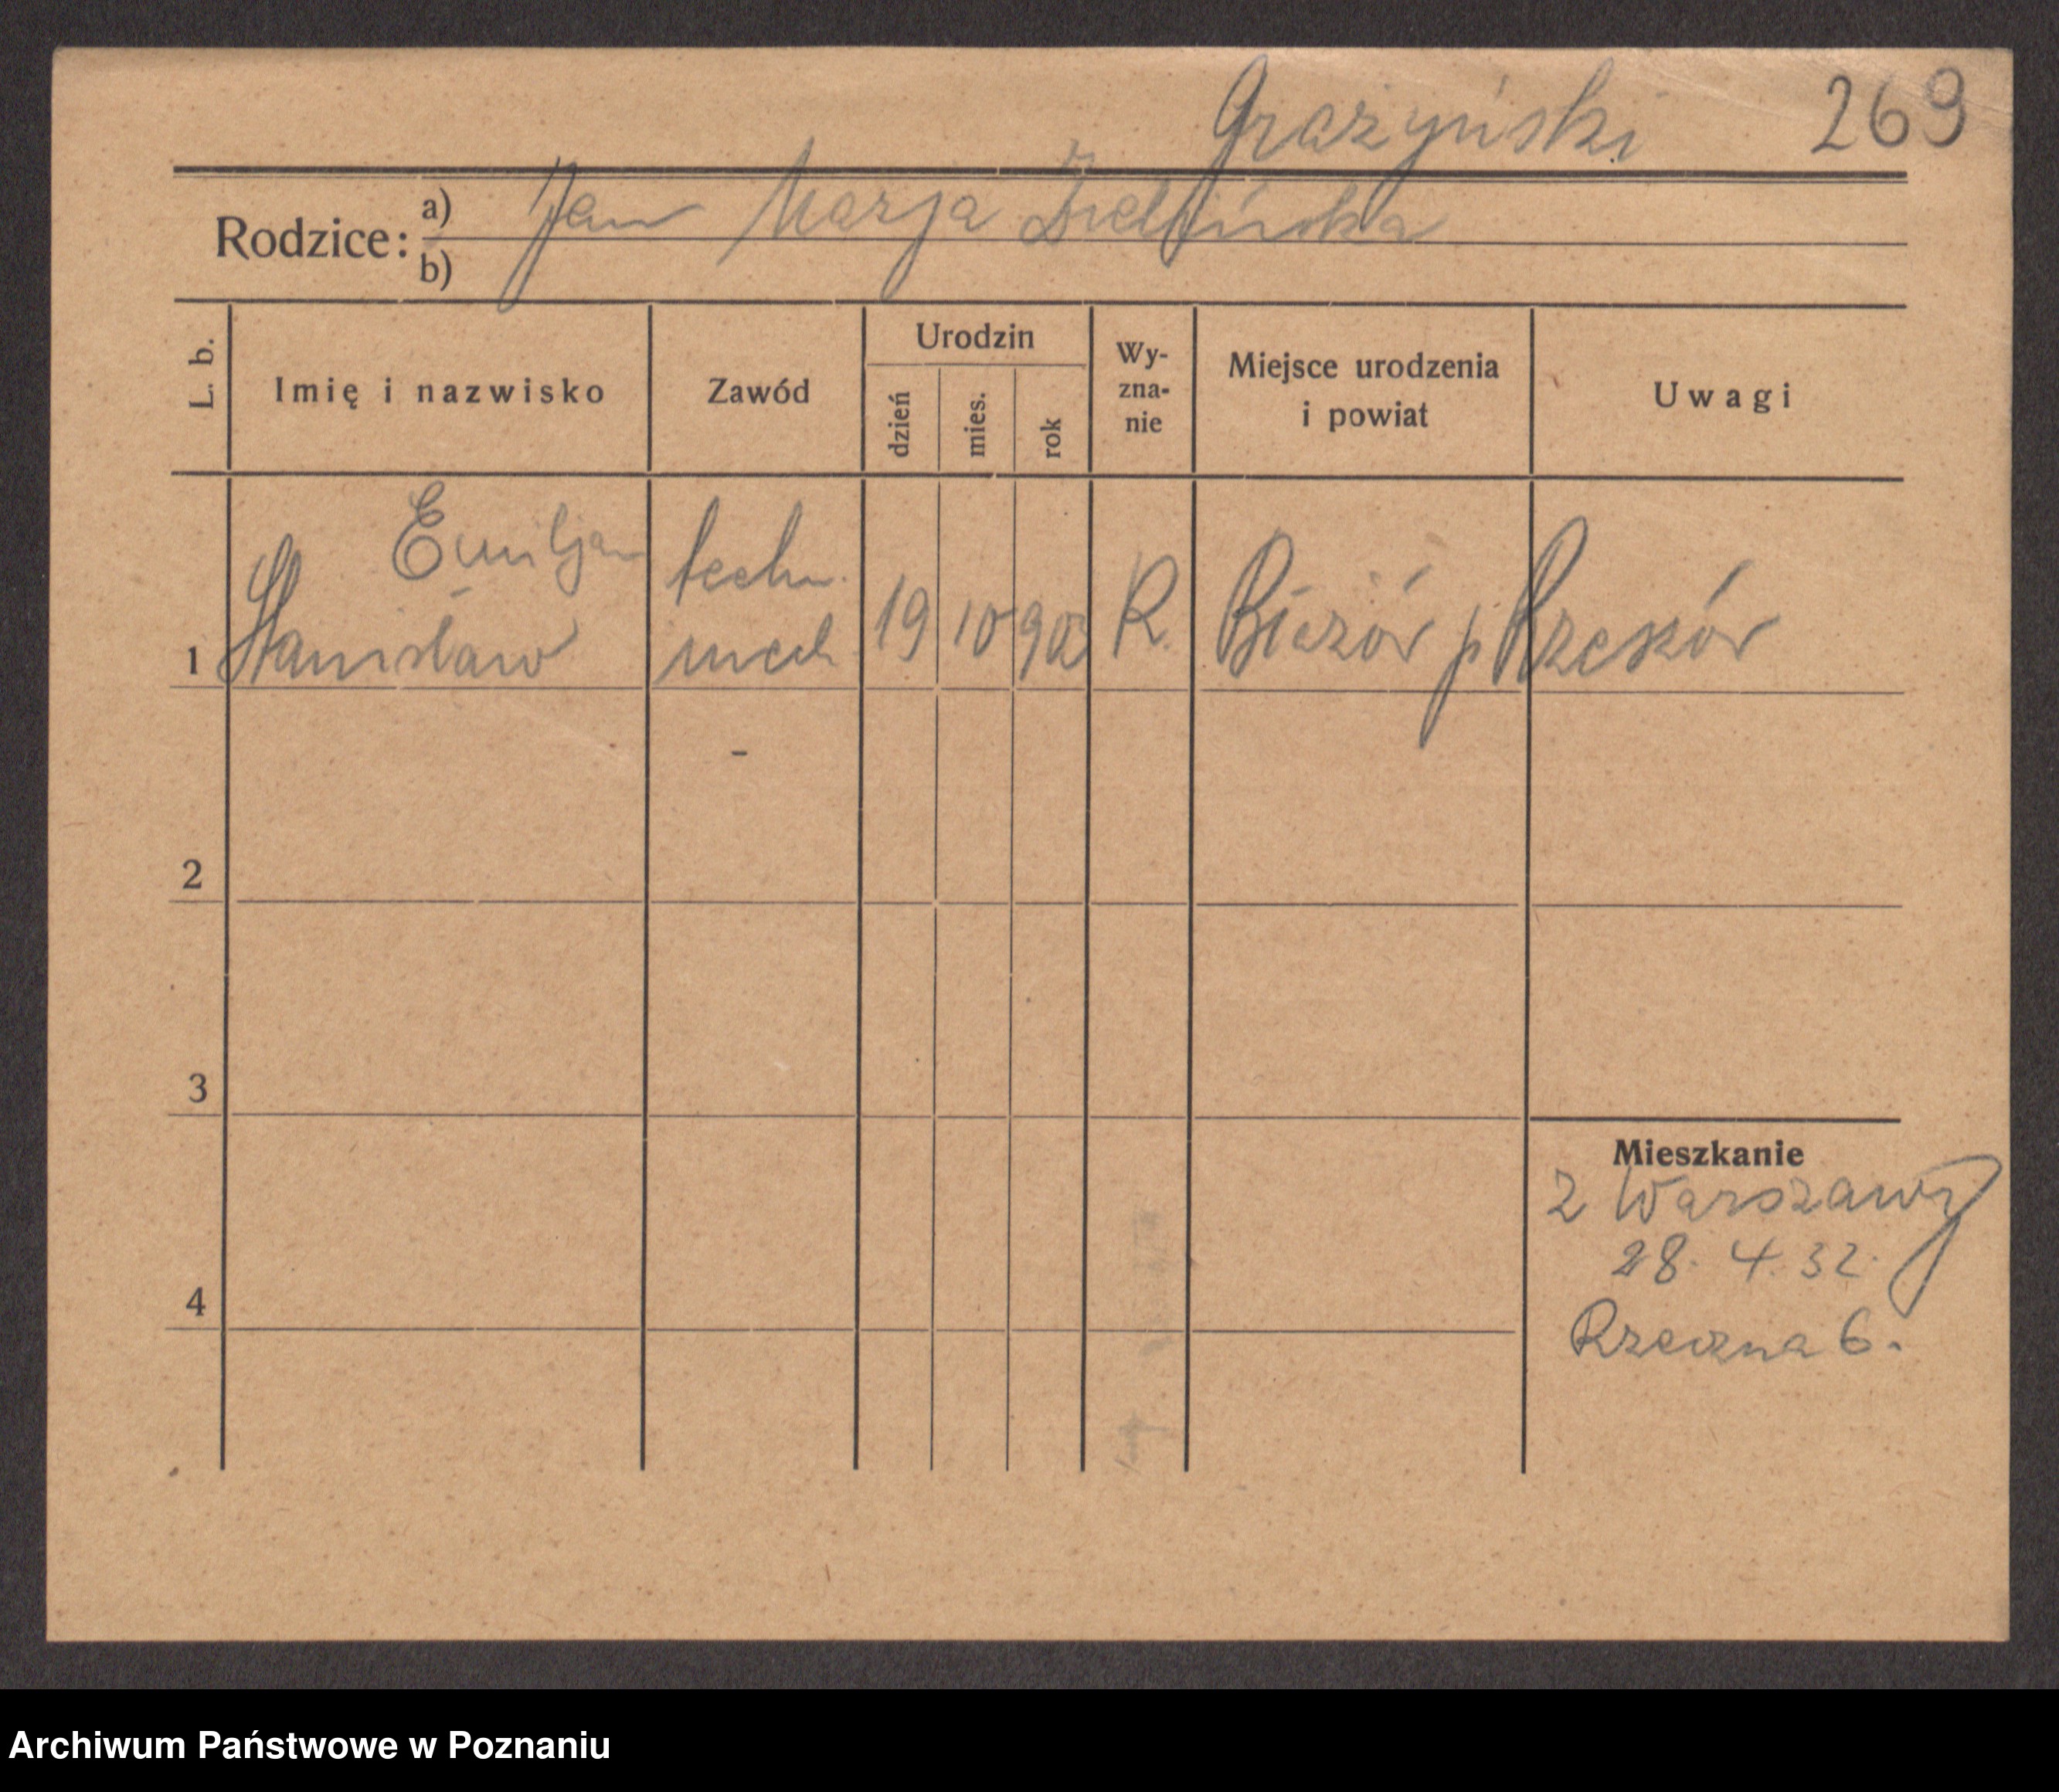 Grażyński 269
Rodzice: a) Jan Marja Zielińska
b)
L. b. Imię i nazwisko Zawód Urodzin dzień mies. rok Wy-zna-nie Miejsce urodzenia i powiat Uwagi
Emiljan techn.
1 Stanisław mech. 19 10 902 R. p Rzeszów
2 -
3
Mieszkanie
z Warszawy
28. 4. 32.
4
Rzeczna 6.
Archiwum Państwowe w Poznaniu